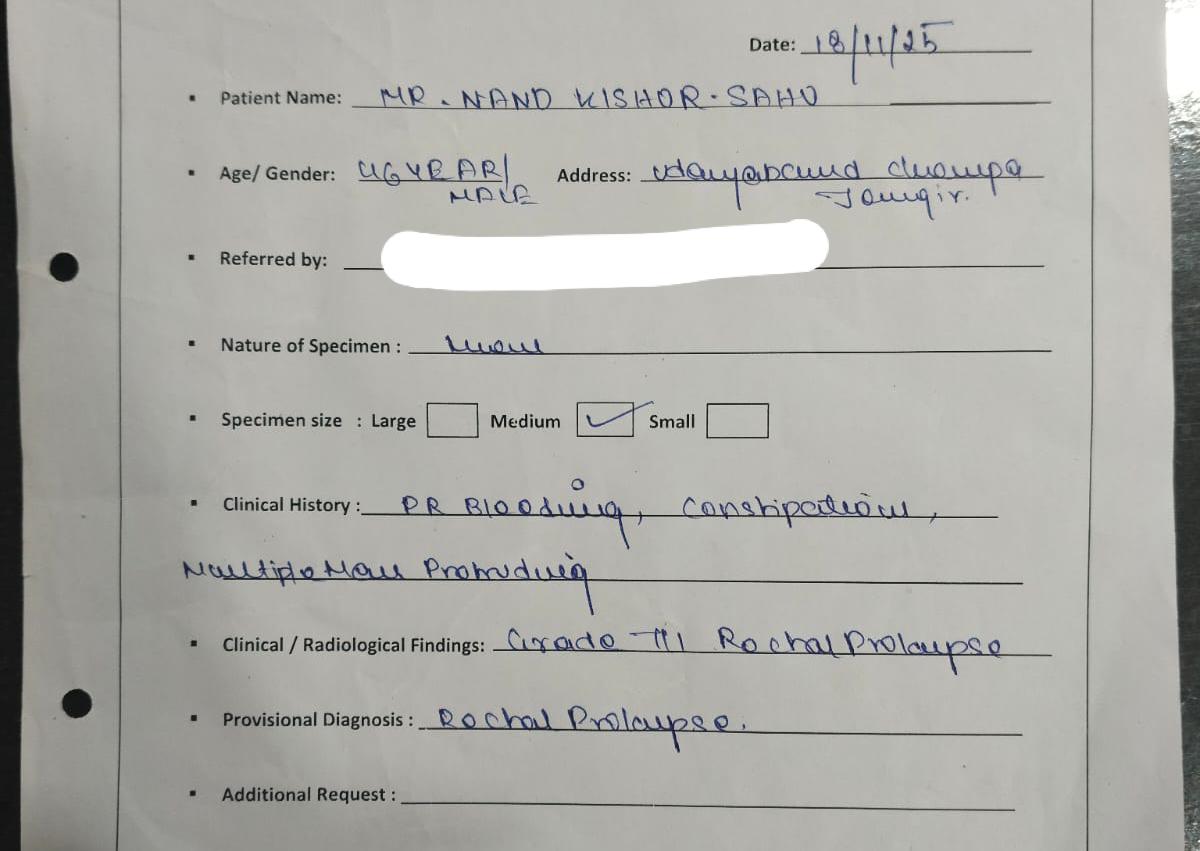 Date: 18/11/25
▪ Patient Name: MR. NAND KISHOR. SAHU
▪ Age/ Gender: 46 YEAR/ Address: champa
MALE Jangir.
▪ Referred by:
▪ Nature of Specimen :
▪ Specimen size : Large Medium ✓ Small
▪ Clinical History : PR Bleeding, Constipation,
Multiple Mass Protruding
▪ Clinical / Radiological Findings: Grade III Rectal Prolapse
▪ Provisional Diagnosis : Rectal Prolapse.
▪ Additional Request :